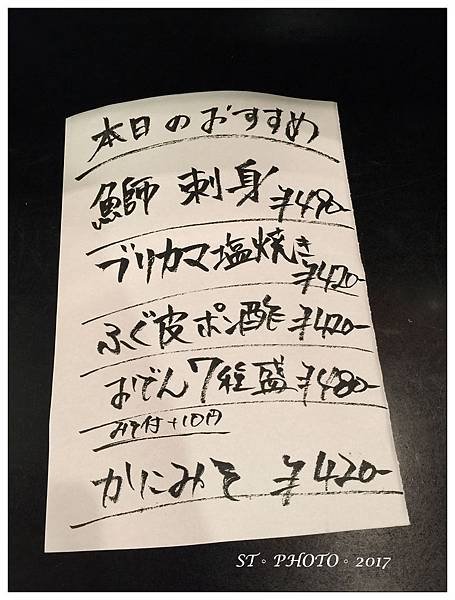 本日のおすすめ
鰤 刺身 ¥490-
ブリカマ塩焼き
¥420-
ふぐ皮ポン酢 ¥420-
おでん7種盛 ¥480-
みそ付+10円
かにみそ ¥420-
ST。PHOTO。2017